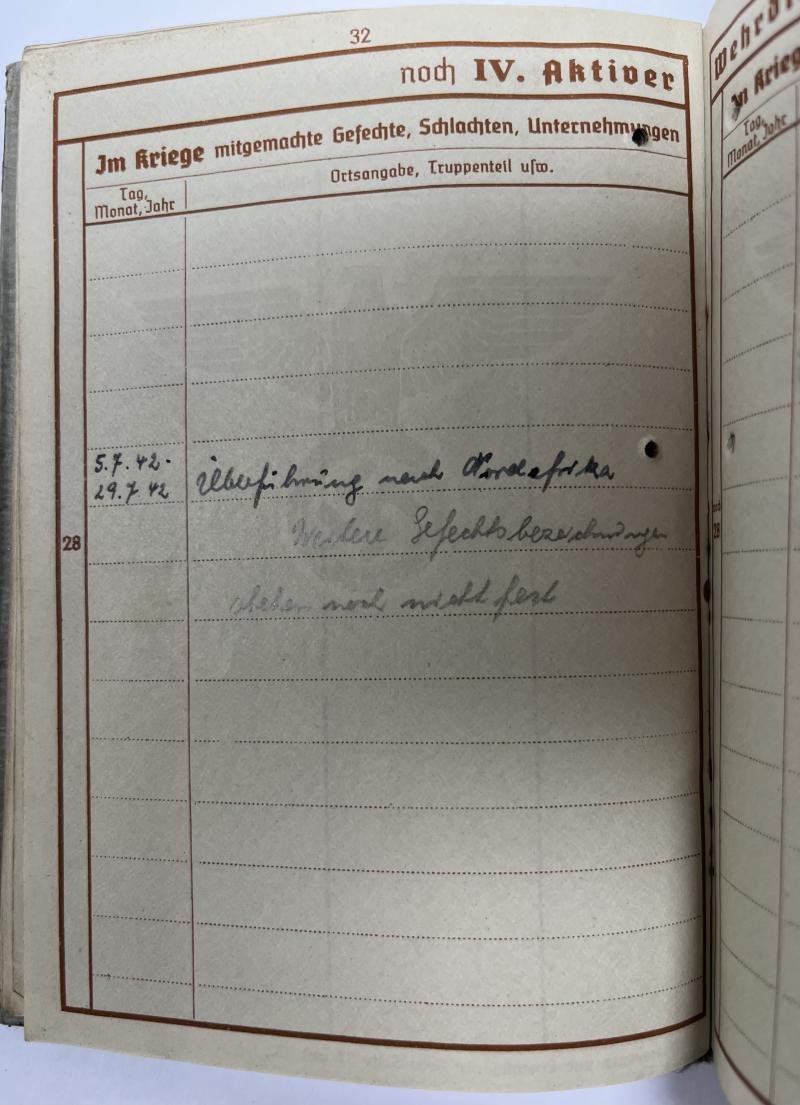 32
noch IV. Aktiver
Im Kriege mitgemachte Gefechte, Schlachten, Unternehmungen
Tag, Monat, Jahr
Ortsangabe, Truppenteil usw.
5.7.42-
29.7.42
Überführung nach Nordafrika
28
Weitere Gefechtsbezeichnungen
stehen noch nicht fest
Wehrdi
Im Kriege
Tag,
Monat, Jahr
28